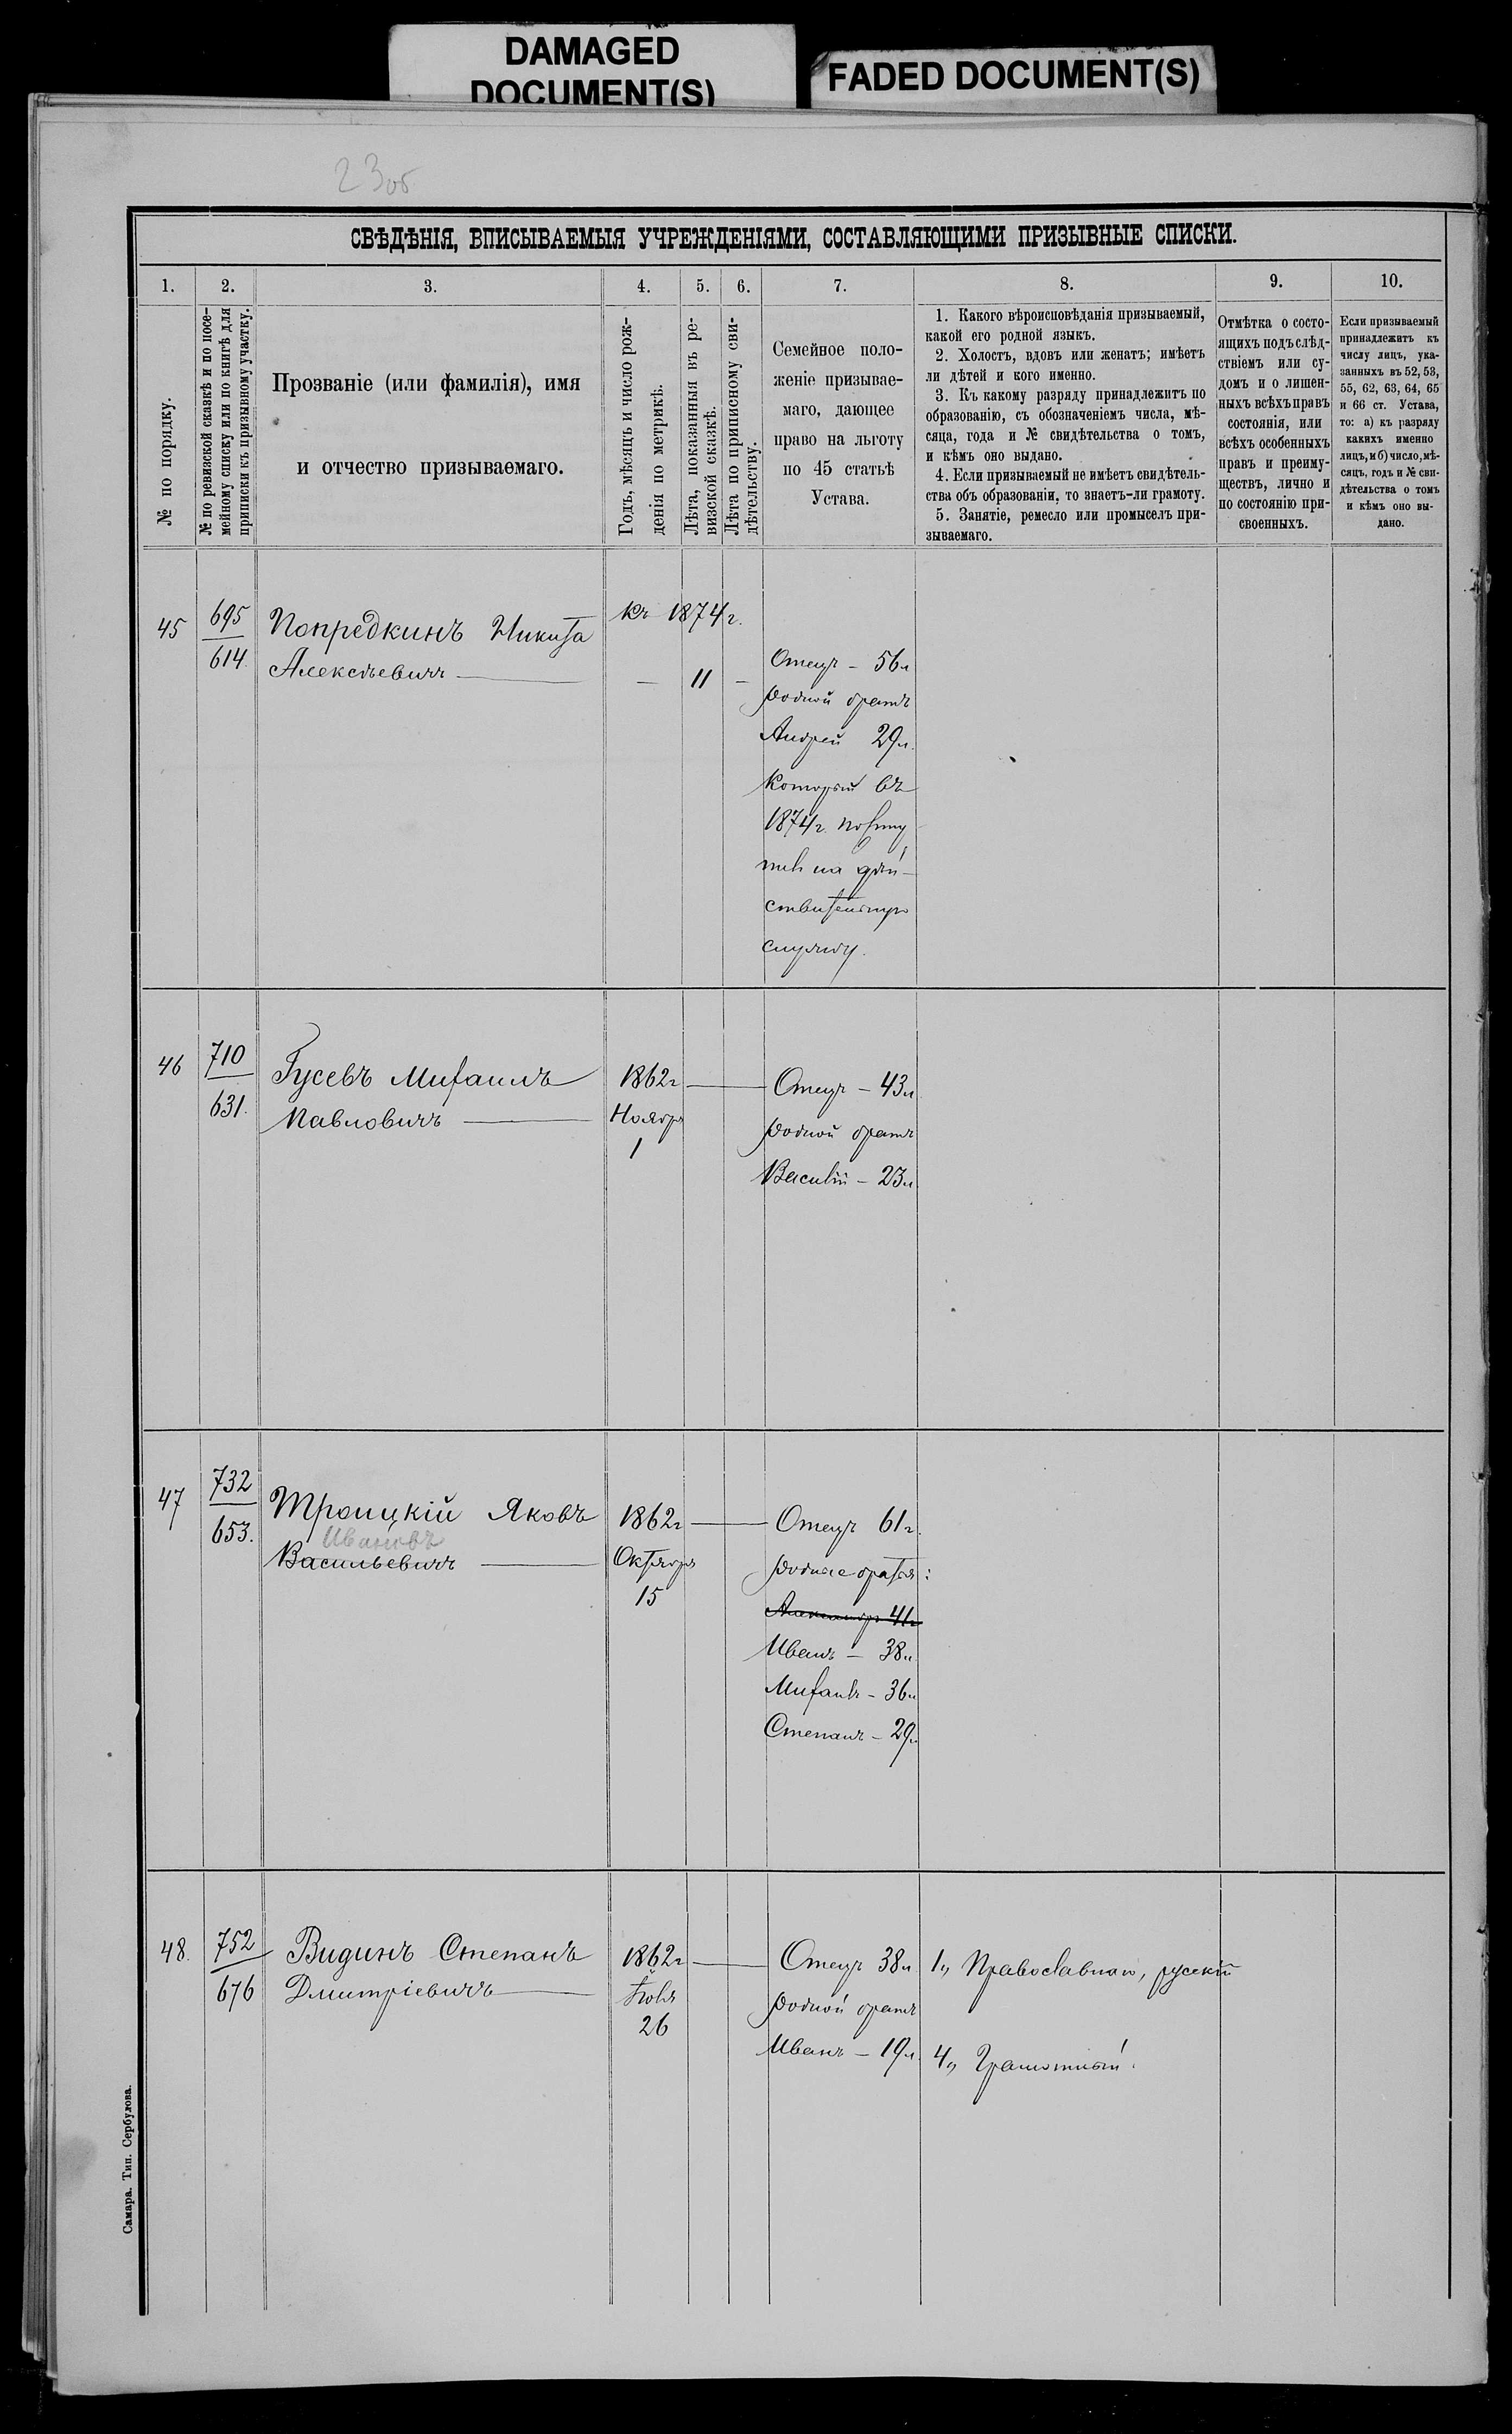 DAMAGED
DOCUMENT(S)
FADED DOCUMENT(S)
23об
СВѢДѢНІЯ, ВПИСЫВАЕМЫЯ УЧРЕЖДЕНІЯМИ, СОСТАВЛЯЮЩИМИ ПРИЗЫВНЫЕ СПИСКИ.
1. 2. 3. 4. 5. 6. 7. 8. 9. 10.
№ по порядку.
№ по ревизской сказкѣ и по посе-
мейному списку или по книгѣ для
приписки къ призывному участку.
Прозваніе (или фамилія), имя
и отчество призываемаго.
Годъ, мѣсяцъ и число рож-
денія по метрикѣ.
Лѣта, показанныя въ ре-
визской сказкѣ.
Лѣта по приписному сви-
дѣтельству.
Семейное поло-
женіе призывае-
маго, дающее
право на льготу
по 45 статьѣ
Устава.
1. Какого вѣроисповѣданія призываемый,
какой его родной языкъ.
2. Холостъ, вдовъ или женатъ; имѣетъ
ли дѣтей и кого именно.
3. Къ какому разряду принадлежитъ по
образованію, съ обозначеніемъ числа, мѣ-
сяца, года и № свидѣтельства о томъ,
и кѣмъ оно выдано.
4. Если призываемый не имѣетъ свидѣтель-
ства объ образованіи, то знаетъ-ли грамоту.
5. Занятіе, ремесло или промыселъ при-
зываемаго.
Отмѣтка о состо-
ящихъ подъ слѣд-
ствіемъ или су-
домъ и о лишен-
ныхъ всѣхъ правъ
состоянія, или
всѣхъ особенныхъ
правъ и преиму-
ществъ, лично и
по состоянію при-
своенныхъ.
Если призываемый
принадлежитъ къ
числу лицъ, ука-
занныхъ въ 52, 53,
55, 62, 63, 64, 65
и 66 ст. Устава,
то: а) къ разряду
какихъ именно
лицъ, и б) число, мѣ-
сяцъ, годъ и № сви-
дѣтельства о томъ
и кѣмъ оно вы-
дано.
45
695
614.
Попредкинъ Никита
Алексѣевичъ
Къ 1874 г.
— 11 —
Отецъ – 56 л
родной братъ
Андрей 29 л.
который въ
1874 г. посту
пилъ на дѣй-
ствительную
службу.
46
710
631.
Гусевъ Михаилъ
Павловичъ
1862 г
Ноября
1
Отецъ – 43 л
родной братъ
Василій – 23 л
47
732
653.
Троицкій Яковъ
Ивановъ
Васильевичъ
1862 г
Октября
15
Отецъ 61 г.
родные братья:
Александръ 41 г
Иванъ – 38 л
Михаилъ – 36 л
Степанъ – 29 л
48.
752
676
Видинъ Степанъ
Дмитріевичъ
1862 г
Іюля
26
Отецъ 38 л
родной братъ
Иванъ – 19 л.
1,, Православнаго, русскій
4,, Грамотный.
Самара. Тип. Сербулова.